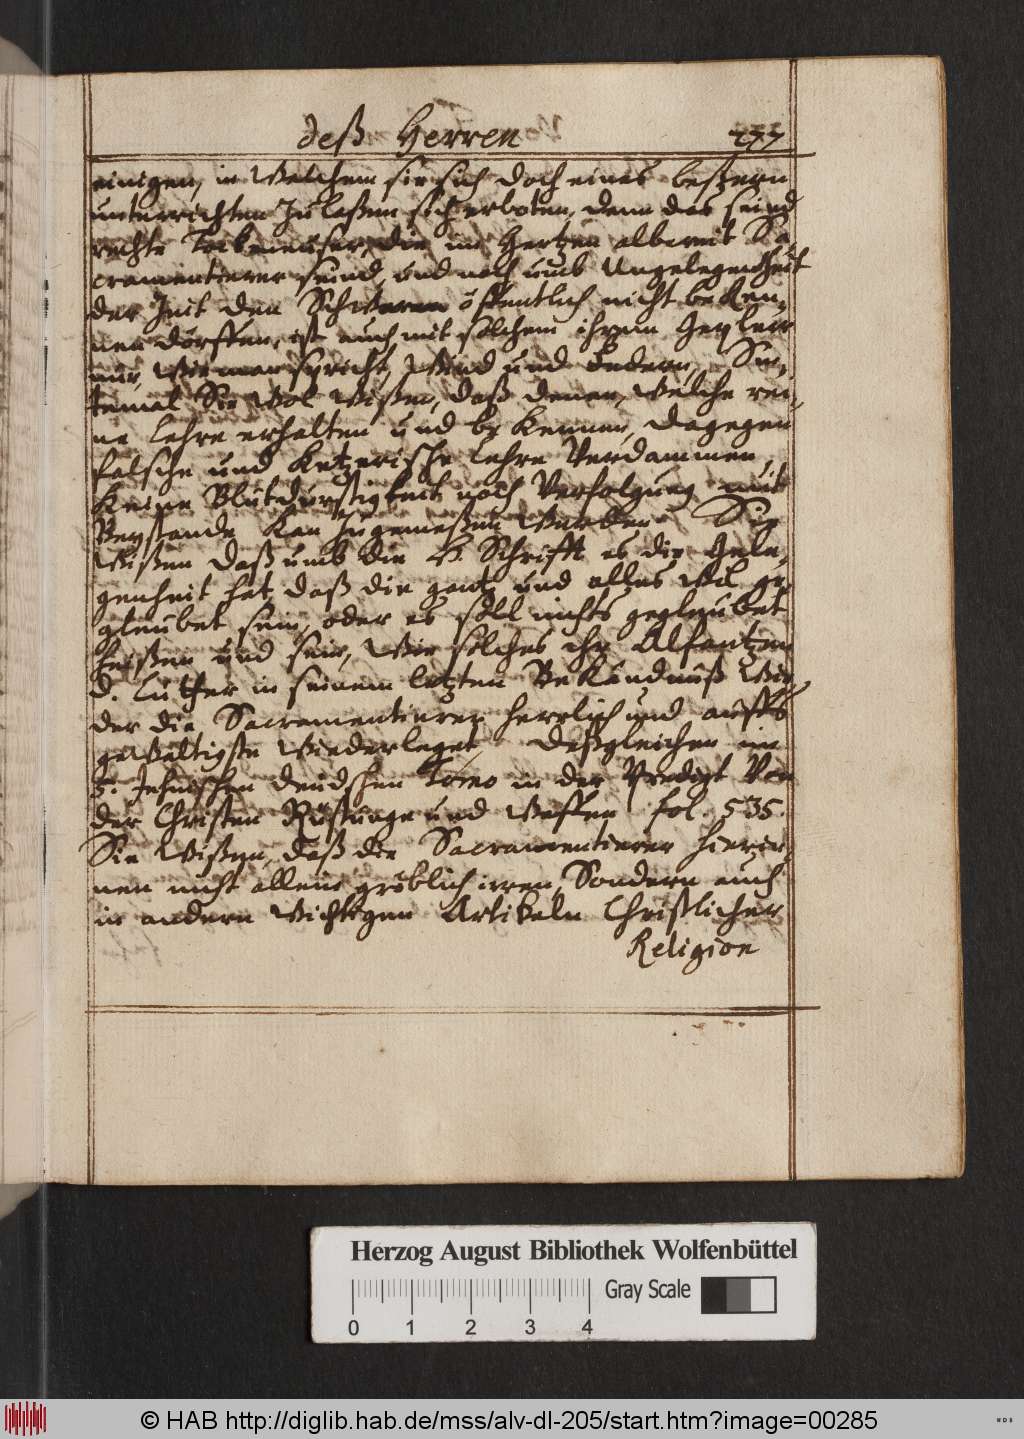 deß Herren 277
einigen, in Welchem sie sich doch eines beßern
unterrichten zu laßen sich erboten, denn das seind
rechte die im Hertzen albereit Sa
cramentierer seind, und noch umb Ungelegenheit
der Zeit den Schwaren öffentlich nicht beken,
nen dörffen, ist auch mit solchem ihrem
nur, Wie man spricht, Wind und Sin,
temal Sie Wol Wißen, daß denen, Welche rei,
ne lehre erhalten und bekennen, dagegen
falsche und Ketzerische lehre Verdammen
keine Blutdurstigkeit noch Verfolgung mit
Verstande kan zugemeßen Werden. Sie
Wißen daß umb die H. Schrifft es die Gele,
genheit hat, daß die gantz und alles Wil ge,
gleubet sein, oder es soll nichts gegleubet
heißen und sein, Wie solches ihr Alfantzen
D. Luther in seinem letzten Bekändnuß Wie,
der die Sacramentierer herrlich und auffs
geWaltigste Wiederleget, Deßgleichen im
5. Jehnischen deudschen Tomo in der Predigt Von
der Christen Rüstunge und Waffen fol. 535.
Sie Wißen, daß die Sacramentierer hierin,
nen nicht allein gröblich irren, Sondern auch
in andern Wichtigen Artikeln Christlicher
Religion
Herzog August Bibliothek Wolfenbüttel
0 1 2 3 4 Gray Scale
© HAB http://diglib.hab.de/mss/alv-dl-205/start.htm?image=00285
WDB